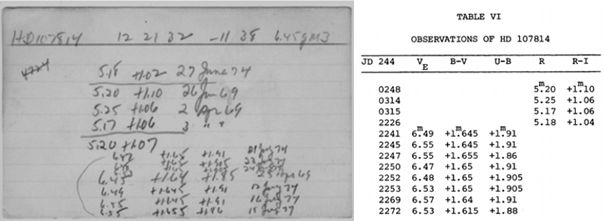 HD107814 12 21 32 -11 38 6.45gM3
5.18 +1.02 27 June 74
5.20 +1.10 26 Jan 69
5.25 +1.06 2 Apr 69
5.17 +1.06 3 " "
5.20 +1.07
+1.65 +1.91
6.49 +1.645 +1.91 12 July 74
6.55 +1.645 +1.91 16 July 74
6.55 +1.655 +1.86 July 74
TABLE VI
OBSERVATIONS OF HD 107814
JD 244 VE B-V U-B R R-I
m m
0248 5.20 +1.10
0314 5.25 +1.06
0315 5.17 +1.06
2226 5.18 +1.04
m m m
2241 6.49 +1.645 +1.91
2245 6.55 +1.645 +1.91
2247 6.55 +1.655 +1.86
2250 6.47 +1.65 +1.91
2252 6.48 +1.65 +1.905
2253 6.53 +1.65 +1.905
2269 6.57 +1.64 +1.91
2272 6.53 +1.615 +1.88